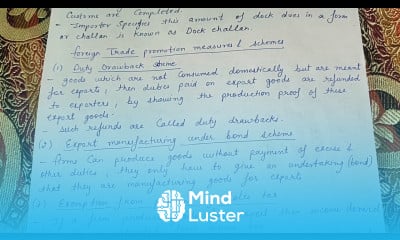 Customs are Completed.
- Importer Specifies this amount of dock dues in a form
or challan is known as Dock challan.
foreign Trade promotion measures & schemes
(1) Duty Drawback
- goods which are not Consumed domestically but are meant
for exports, then duties paid on export goods are refunded
to exporters, by showing the production proof of these
export goods.
- Such refunds are Called duty drawbacks.
(2) Export manufacturing under bond scheme
- firms Can produce goods without payment of excise &
other duties, they only have to give an undertaking (bond)
that they are manufacturing goods for exports
(3) Exemption from tax
Mind
Luster